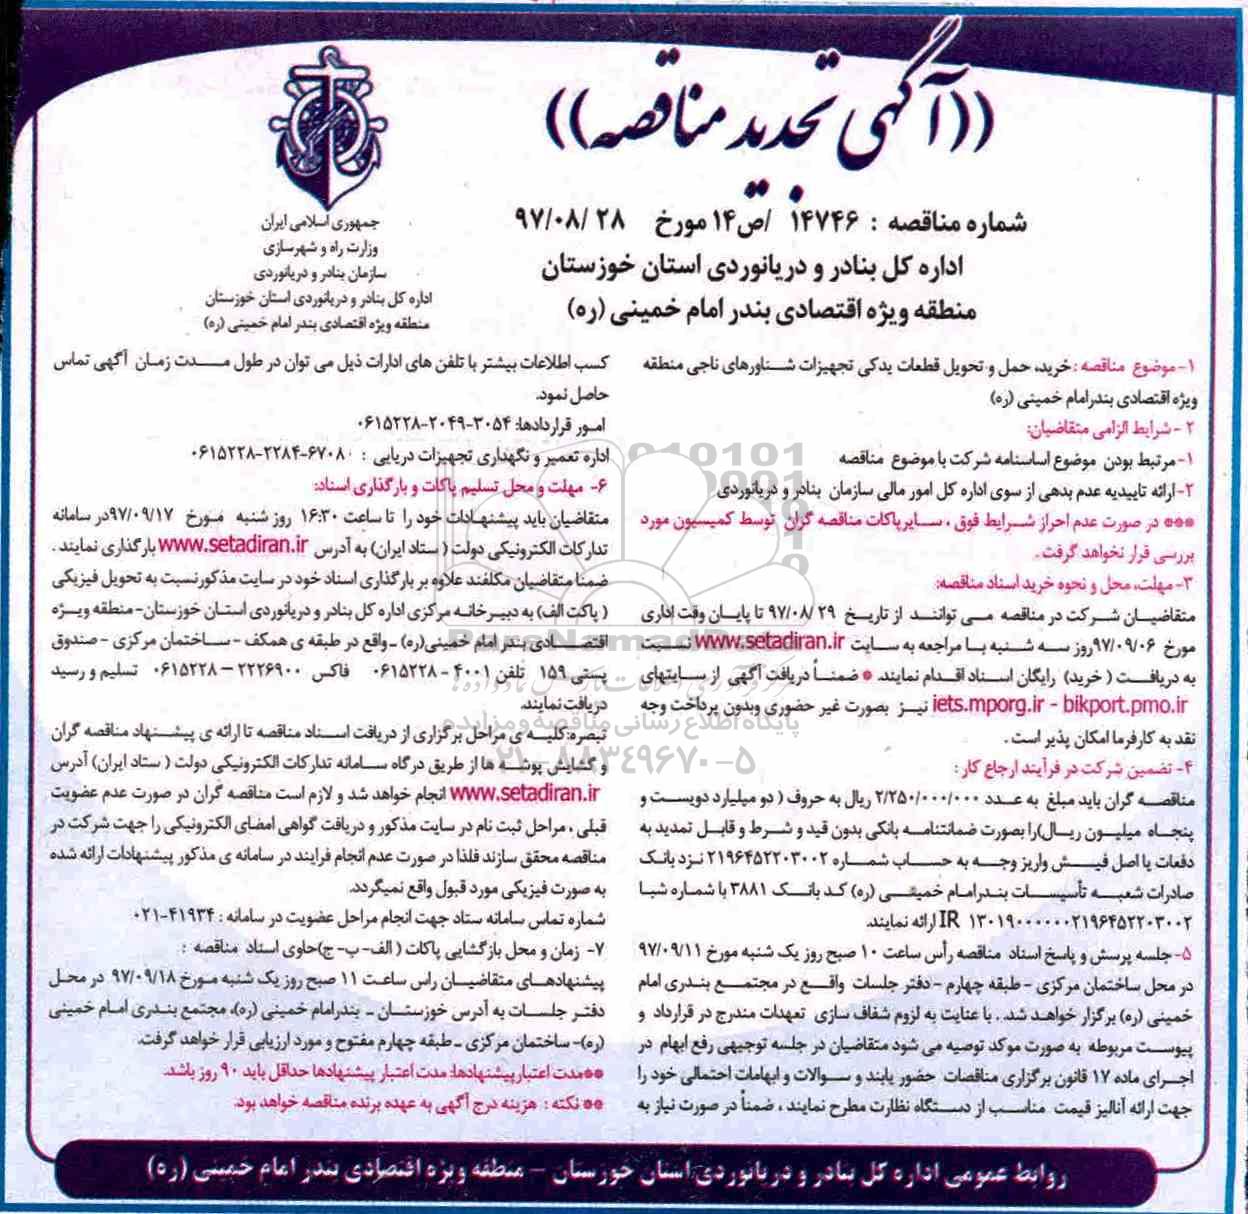 ((آگهی تجدید مناقصه))
شماره مناقصه : ۱۴۷۴۶ /ص۱۴ مورخ ۲۸ /۹۷/۰۸
اداره کل بنادر و دریانوردی استان خوزستان
منطقه ویژه اقتصادی بندر امام خمینی (ره)
جمهوری اسلامی ایران
وزارت راه و شهرسازی
سازمان بنادر و دریانوردی
اداره کل بنادر و دریانوردی استان خوزستان
منطقه ویژه اقتصادی بندر امام خمینی (ره)
۱-موضوع مناقصه : خرید، حمل و تحویل قطعات یدکی تجهیزات شناورهای ناجی منطقه
ویژه اقتصادی بندرامام خمینی (ره)
۲ -شرایط الزامی متقاضیان:
۱-مرتبط بودن موضوع اساسنامه شرکت با موضوع مناقصه
۲-ارائه تاییدیه عدم بدهی از سوی اداره کل امور مالی سازمان بنادر و دریانوردی
*** در صورت عدم احراز شرایط فوق ، سایر پاکات مناقصه گران توسط کمیسیون مورد
بررسی قرار نخواهد گرفت .
۳-مهلت، محل و نحوه خرید اسناد مناقصه:
متقاضیان شرکت در مناقصه می توانند از تاریخ ۹۷/۰۸/۲۹ تا پایان وقت اداری
مورخ ۹۷/۰۹/۰۶روز سه شنبه با مراجعه به سایت www.setadiran.ir نسبت
به دریافت ( خرید) رایگان اسناد اقدام نمایند. * ضمناً دریافت آگهی از سایتهای
iets.mporg.ir - bikport.pmo.ir نیز بصورت غیر حضوری وبدون پرداخت وجه
نقد به کارفرما امکان پذیر است .
۴- تضمین شرکت در فرآیند ارجاع کار :
مناقصه گران باید مبلغ به عدد ۲/۲۵۰/۰۰۰/۰۰۰ ریال به حروف ( دو میلیارد دویست و
پنجاه میلیون ریال)را بصورت ضمانتنامه بانکی بدون قید و شرط و قابل تمدید به
دفعات یا اصل فیش واریز وجه به حساب شماره ۲۱۹۶۴۵۲۲۰۳۰۰۲ نزد بانک
صادرات شعبه تأسیسات بندرامام خمینی (ره) کد بانک ۳۸۸۱ با شماره شبا
IR ۱۳۰۱۹۰۰۰۰۰۰۲۱۹۶۴۵۲۲۰۳۰۰۲ ارائه نمایند.
۵-جلسه پرسش و پاسخ اسناد مناقصه رأس ساعت ۱۰ صبح روز یک شنبه مورخ ۹۷/۰۹/۱۱
در محل ساختمان مرکزی - طبقه چهارم -دفتر جلسات واقع در مجتمع بندری امام
خمینی (ره) برگزار خواهد شد. . با عنایت به لزوم شفاف سازی تعهدات مندرج در قرارداد و
پیوست مربوطه به صورت موکد توصیه می شود متقاضیان در جلسه توجیهی رفع ابهام در
اجرای ماده ۱۷ قانون برگزاری مناقصات حضور یابند و سوالات و ابهامات احتمالی خود را
جهت ارائه آنالیز قیمت مناسب از دستگاه نظارت مطرح نمایند ، ضمناً در صورت نیاز به
کسب اطلاعات بیشتر با تلفن های ادارات ذیل می توان در طول مدت زمان آگهی تماس
حاصل نمود.
امور قراردادها: ۳۰۵۴-۲۰۴۹-۰۶۱۵۲۲۸
اداره تعمیر و نگهداری تجهیزات دریایی : ۶۷۰۸۰-۲۲۸۴-۰۶۱۵۲۲۸
۶- مهلت و محل تسلیم پاکات و بارگذاری اسناد:
متقاضیان باید پیشنهادات خود را تا ساعت ۱۶:۳۰ روز شنبه مورخ ۹۷/۰۹/۱۷در سامانه
تدارکات الکترونیکی دولت ( ستاد ایران) به آدرس www.setadiran.ir بارگذاری نمایند .
ضمنا متقاضیان مکلفند علاوه بر بارگذاری اسناد خود در سایت مذکورنسبت به تحویل فیزیکی
( پاکت الف) به دبیرخانه مرکزی اداره کل بنادر و دریانوردی استان خوزستان- منطقه ویژه
اقتصادی بندر امام خمینی(ره) -واقع در طبقه ی همکف - ساختمان مرکزی - صندوق
پستی ۱۵۹ تلفن ۴۰۰۱ - ۰۶۱۵۲۲۸ فاکس ۲۲۲۶۹۰۰ – ۰۶۱۵۲۲۸ تسلیم و رسید
دریافت نمایند.
تبصره:کلیه ی مراحل برگزاری از دریافت اسناد مناقصه تا ارائه ی پیشنهاد مناقصه گران
و گشایش پوشه ها از طریق درگاه سامانه تدارکات الکترونیکی دولت ( ستاد ایران) آدرس
www.setadiran.ir انجام خواهد شد و لازم است مناقصه گران در صورت عدم عضویت
قبلی ، مراحل ثبت نام در سایت مذکور و دریافت گواهی امضای الکترونیکی را جهت شرکت در
مناقصه محقق سازند فلذا در صورت عدم انجام فرایند در سامانه ی مذکور پیشنهادات ارائه شده
به صورت فیزیکی مورد قبول واقع نمیگردد.
شماره تماس سامانه ستاد جهت انجام مراحل عضویت در سامانه : ۴۱۹۳۴-۰۲۱
۷- زمان و محل بازگشایی پاکات ( الف-ب-ج)حاوی اسناد مناقصه :
پیشنهادهای متقاضیان راس ساعت ۱۱ صبح روز یک شنبه مورخ ۹۷/۰۹/۱۸ در محل
دفتر جلسات به آدرس خوزستان - بندرامام خمینی (ره)، مجتمع بندری امام خمینی
(ره)- ساختمان مرکزی -طبقه چهارم مفتوح و مورد ارزیابی قرار خواهد گرفت.
**مدت اعتبار پیشنهادها: مدت اعتبار پیشنهادها حداقل باید ۹۰ روز باشد.
** نکته : هزینه درج آگهی به عهده برنده مناقصه خواهد بود.
پایگاه اطلاع رسانی مناقصه و مزایده
۰۲۱-۸۸۳۴۹۶۷۰-۵
روابط عمومی اداره کل بنادر و دریانوردی استان خوزستان – منطقه ویژه اقتصادی بندر امام خمینی (ره)